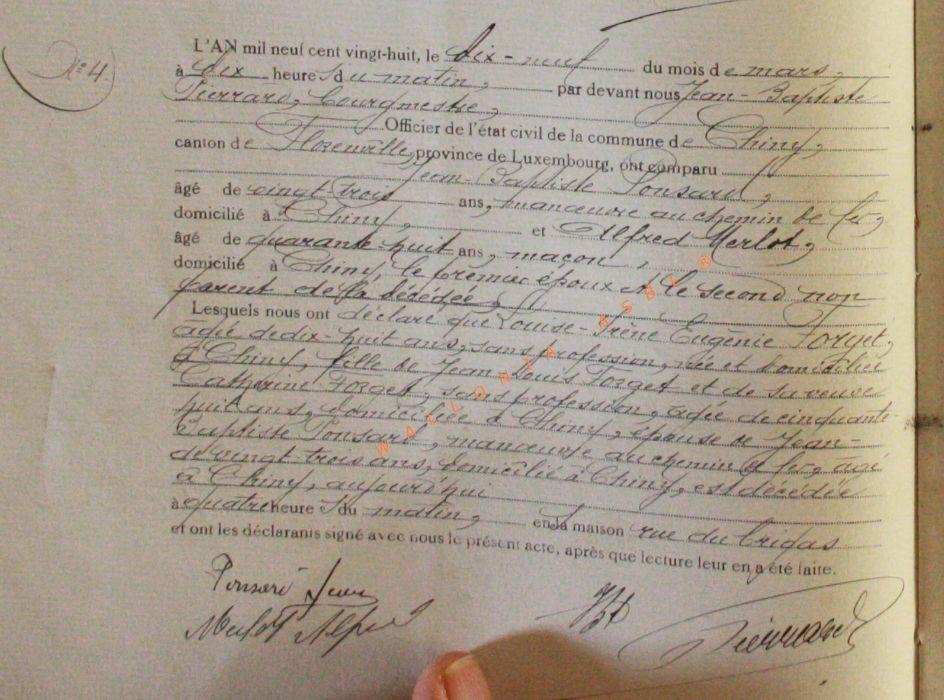 N° 4
L'AN mil neuf cent vingt-huit, le dix-neuf du mois de mars,
à dix heures du matin, par devant nous Jean-Baptiste
Pierrard, bourgmestre,
Officier de l'état civil de la commune de Chiny,
canton de Florenville, province de Luxembourg, ont comparu
Jean-Baptiste Ponsard,
âgé de vingt-trois ans, manœuvre au chemin de fer,
domicilié à Chiny, et Alfred Merlot,
âgé de quarante huit ans, maçon,
domicilié à Chiny, le premier époux et le second non
parent de la décédée,
Lesquels nous ont déclaré que Louise-Irène Eugénie Forget,
agée de dix-huit ans, sans profession, née et domiciliée
à Chiny, fille de Jean Louis Forget et de sa veuve
Catherine Forget, sans profession, agée de cinquante-
huit ans, domiciliée à Chiny, épouse de Jean-
Baptiste Ponsard, manœuvre au chemin de fer, âgé
de vingt-trois ans, domicilié à Chiny, est décédée
à Chiny, aujourd'hui
à quatre heures du matin, en la maison rue du
et ont les déclarants signé avec nous le présent acte, après que lecture leur en a été faite.
Ponsard Jean
Merlot Alfred
Pierrard
WALLONIA ASBL ®